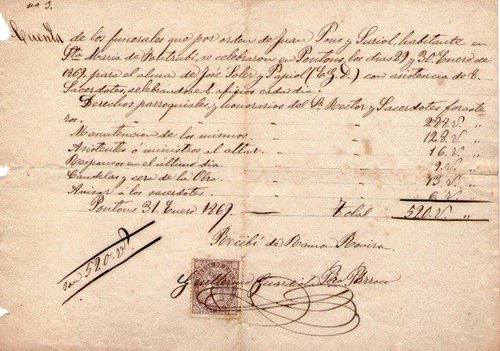 no. 3.
Cuenta de los funerales que por orden de Juan Pons y Suriol, habitante en
Sta. Maria de, se celebraron en Pontons, los dias 29 y 30 Enero de
1869 para el alma de José Soler y Papiol (E.G.D.) con asistencia de
Sacerdotes, celebrandose oficios cada dia.
Derechos parroquiales y honorarios del Sr. Rector y Sacerdotes foraste-
ros. — —
Manutencion de los mismos. — — 128 "
Asistentes ó ministros al altar. — — 16 "
Responsos en el último dia — —
Candelas y cera de la Obra. — — 13 "
Avisar a los sacerdotes. — — 6 "
Pontons 31 Enero 1869. — Total 520 "
Recibí de Ramon Rovira.
son 520
Guillermo Guardiola Pbro. Párroco